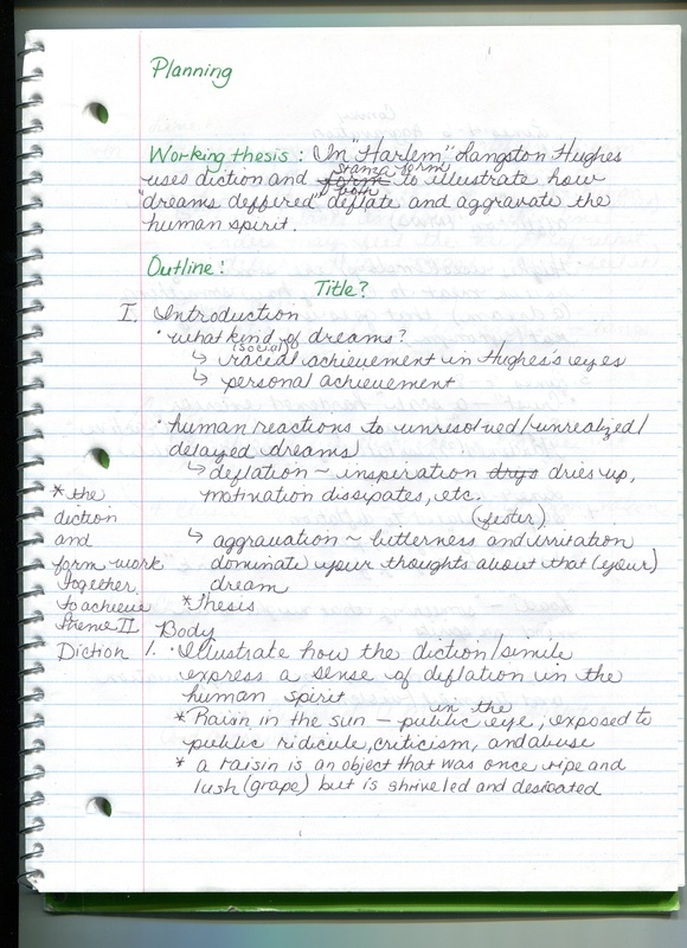 Planning
Working thesis: In "Harlem" Langston Hughes
stanza form
uses diction and form to illustrate how
both
"dreams deffered" deflate and aggravate the
human spirit.
Outline:
Title?
I. Introduction
· what kind of dreams?
(social)
↳ racial achievement in Hughes's eyes
↳ personal achievement
· human reactions to unresolved/unrealized/
delayed dreams
↳ deflation ~ inspiration drys dries up,
motivation dissipates, etc.
(fester)
↳ aggravation ~ bitterness and irritation
dominate your thoughts about that (your)
dream
*Thesis
* the
diction
and
form work
together
to achieve
theme
II. Body
Diction 1. · Illustrate how the diction/simile
express a sense of deflation in the
human spirit
in the
* Raisin in the sun — public eye; exposed to
public ridicule, criticism, and abuse
* a raisin is an object that was once ripe and
lush (grape) but is shriveled and desicated